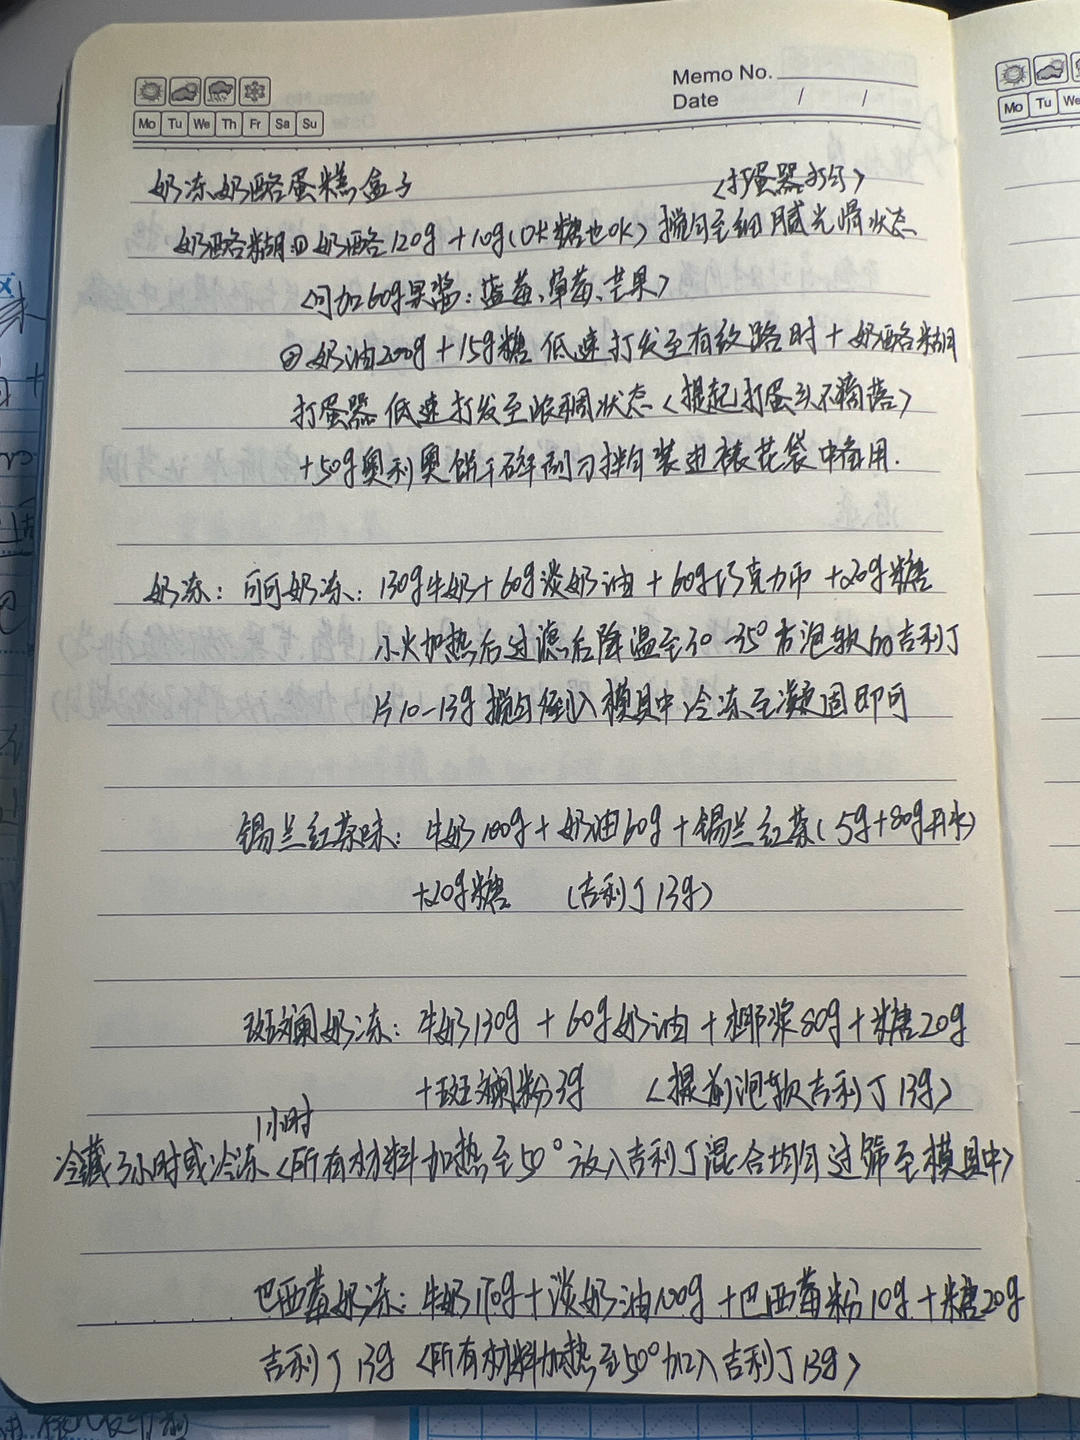 Memo No.
Date / /
Mo Tu We Th Fr Sa Su
Mo Tu We
奶冻奶酪蛋糕盒子 <打蛋器打匀>
奶酪糊① 奶酪120g + 10g(OK糖也OK) 搅匀至细腻光滑状态
<可加60g果酱: 蓝莓、草莓、芒果>
② 奶油200g + 15g糖 低速打发至有纹路时 + 奶酪糊
打蛋器 低速打发至浓稠状态 <提起打蛋头不滴落>
+50g奥利奥饼干碎刮刀拌匀装进裱花袋中备用.
奶冻: 可可奶冻: 130g牛奶 + 60g淡奶油 + 60g巧克力币 +20g糖
小火加热后过滤后降温至30-35°右泡软的吉利丁
片10-13g 搅匀倒入模具中冷冻至凝固即可
锡兰红茶味: 牛奶100g + 奶油60g + 锡兰红茶(5g+80g开水)
+20g糖 (吉利丁13g)
斑斓奶冻: 牛奶130g + 60g奶油 + 椰浆80g + 糖20g
+斑斓粉3g <提前泡软吉利丁13g>
1小时
冷藏3小时或冷冻 <所有材料加热至50°放入吉利丁混合均匀过筛至模具中>
巴西莓奶冻: 牛奶170g + 淡奶油100g + 巴西莓粉10g + 糖20g
吉利丁13g <所有材料加热至50°加入吉利丁13g>